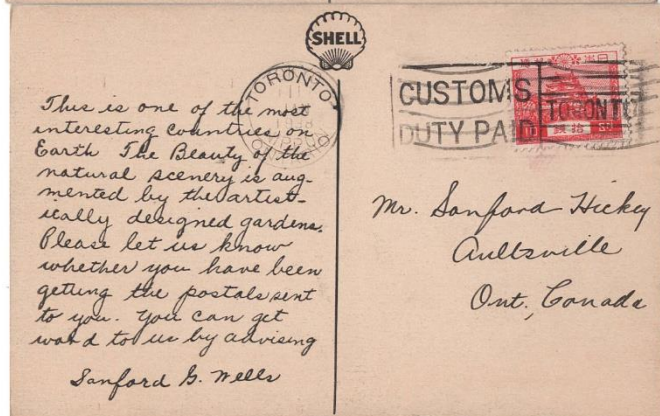 SHELL
TORONTO
ONTARIO
CUSTOMS
DUTY PAID
TORONTO
This is one of the most
interesting countries on
Earth The Beauty of the
natural scenery is aug-
mented by the artist-
ically designed gardens.
Please let us know
whether you have been
getting the postals sent
to you. You can get
word to us by advising
Sanford G. Wells
Mr. Sanford Hickey
Aultsville
Ont., Canada